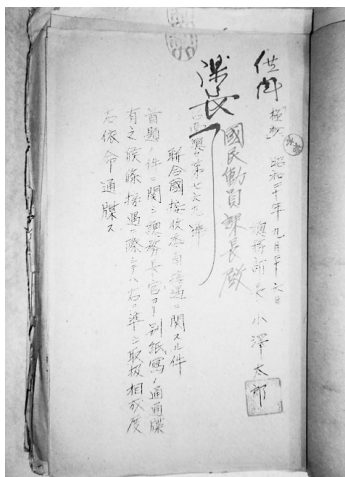 供閲
昭和二十年九月二十六日
總務部長 小澤太郎
課長
國民動員課長殿
第七六九号
聯合國接收委員待遇ニ関スル件
首題ノ件ニ関シ總務長官ヨリ別紙寫ノ通通牒
有之候條待遇ノ際シテハ右ニ準ジ取扱相成度
右依命通牒ス